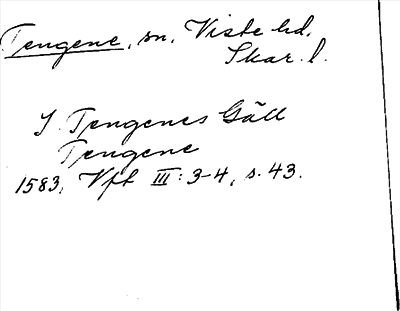 Tengene, sn, Viste hd,
Skar. l.
I Tengenes Gäll
Tengene
1583, Vft III: 3-4, s. 43.